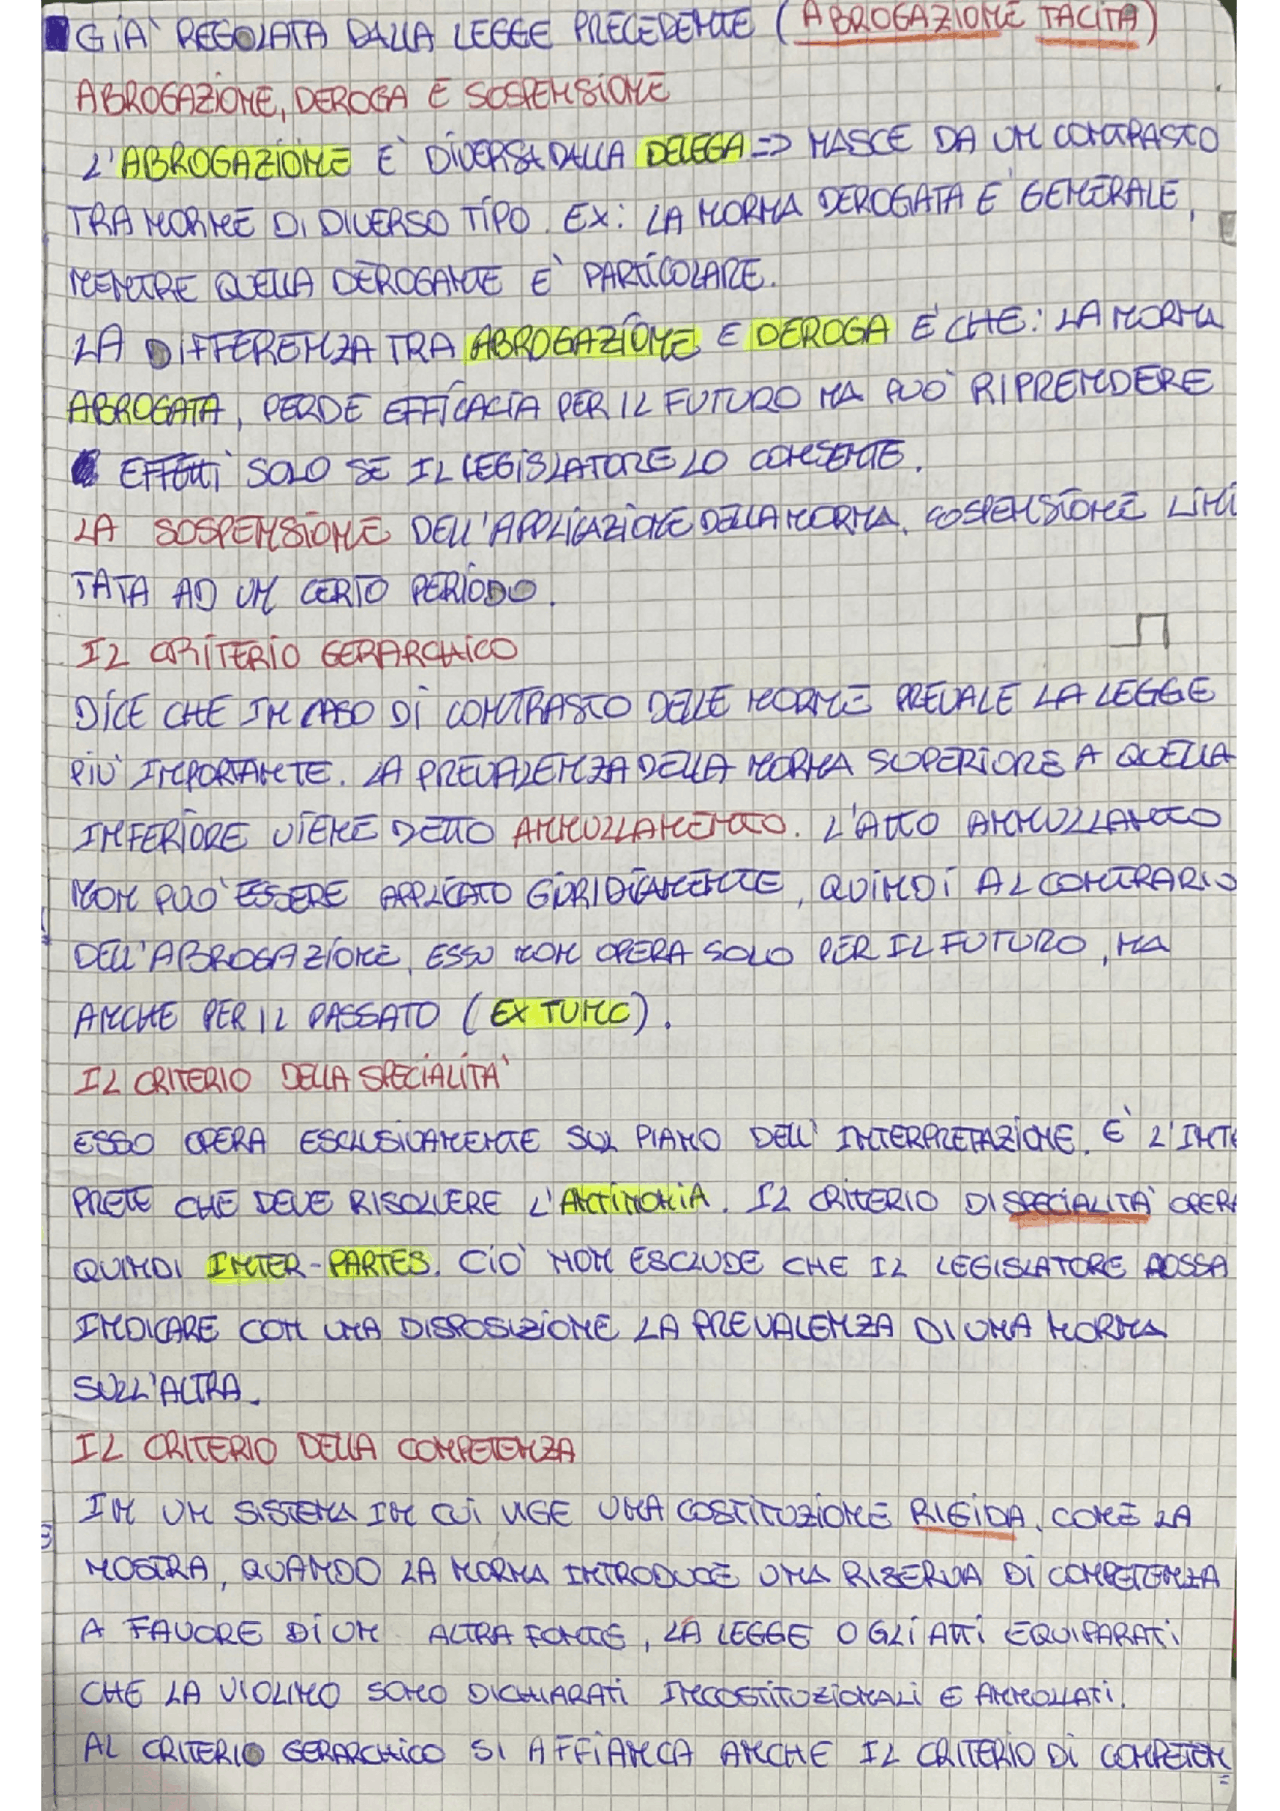 GIÀ REGOLATA DALLA LEGGE PRECEDENTE (ABROGAZIONE TACITA)
ABROGAZIONE, DEROGA E SOSPENSIONE
L'ABROGAZIONE E' DIVERSA DALLA DELEGA => NASCE DA UN CONTRASTO
TRA NORME DI DIVERSO TIPO. EX: LA NORMA DEROGATA E' GENERALE,
MENTRE QUELLA DEROGANTE E' PARTICOLARE.
LA DIFFERENZA TRA ABROGAZIONE E DEROGA E' CHE: LA NORMA
ABROGATA, PERDE EFFICACIA PER IL FUTURO MA PUO' RIPRENDERE
EFFETTI SOLO SE IL LEGISLATORE LO CONSENTE.
LA SOSPENSIONE DELL'APPLICAZIONE DELLA NORMA, SOSPENSIONE LIMI
TATA AD UN CERTO PERIODO.
IL CRITERIO GERARCHICO
DICE CHE IN CASO DI CONTRASTO DELLE NORME PREVALE LA LEGGE
PIU' IMPORTANTE. LA PREVALENZA DELLA NORMA SUPERIORE A QUELLA
INFERIORE VIENE DETTO ANNULLAMENTO. L'ATTO ANNULLANTO
NON PUO' ESSERE APPLICATO GIURIDICAMENTE, QUINDI AL CONTRARIO
DELL'ABROGAZIONE, ESSO NON OPERA SOLO PER IL FUTURO, MA
ANCHE PER IL PASSATO (EX TUNC).
IL CRITERIO DELLA SPECIALITA'
ESSO OPERA ESCLUSIVAMENTE SUL PIANO DELL'INTERPRETAZIONE. E' L'INTE
PRETE CHE DEVE RISOLVERE L'ANTINOMIA. IL CRITERIO DI SPECIALITA' OPERA
QUINDI INTER-PARTES. CIO' NON ESCLUDE CHE IL LEGISLATORE POSSA
INDICARE CON UNA DISPOSIZIONE LA PREVALENZA DI UNA NORMA
SULL'ALTRA.
IL CRITERIO DELLA COMPETENZA
IN UN SISTEMA IN CUI VIGE UNA COSTITUZIONE RIGIDA, COME LA
NOSTRA, QUANDO LA NORMA INTRODUCE UNA RISERVA DI COMPETENZA
A FAVORE DI UN ALTRA FONTE, LA LEGGE O GLI ATTI EQUIPARATI
CHE LA VIOLINO SONO DICHIARATI INCOSTITUZIONALI E ANNULLATI.
AL CRITERIO GERARCHICO SI AFFIANCA ANCHE IL CRITERIO DI COMPETEN